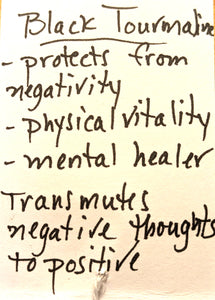 Black Tourmaline
- protects from
negativity
- physical vitality
- mental healer
Transmutes
negative thoughts
to positive